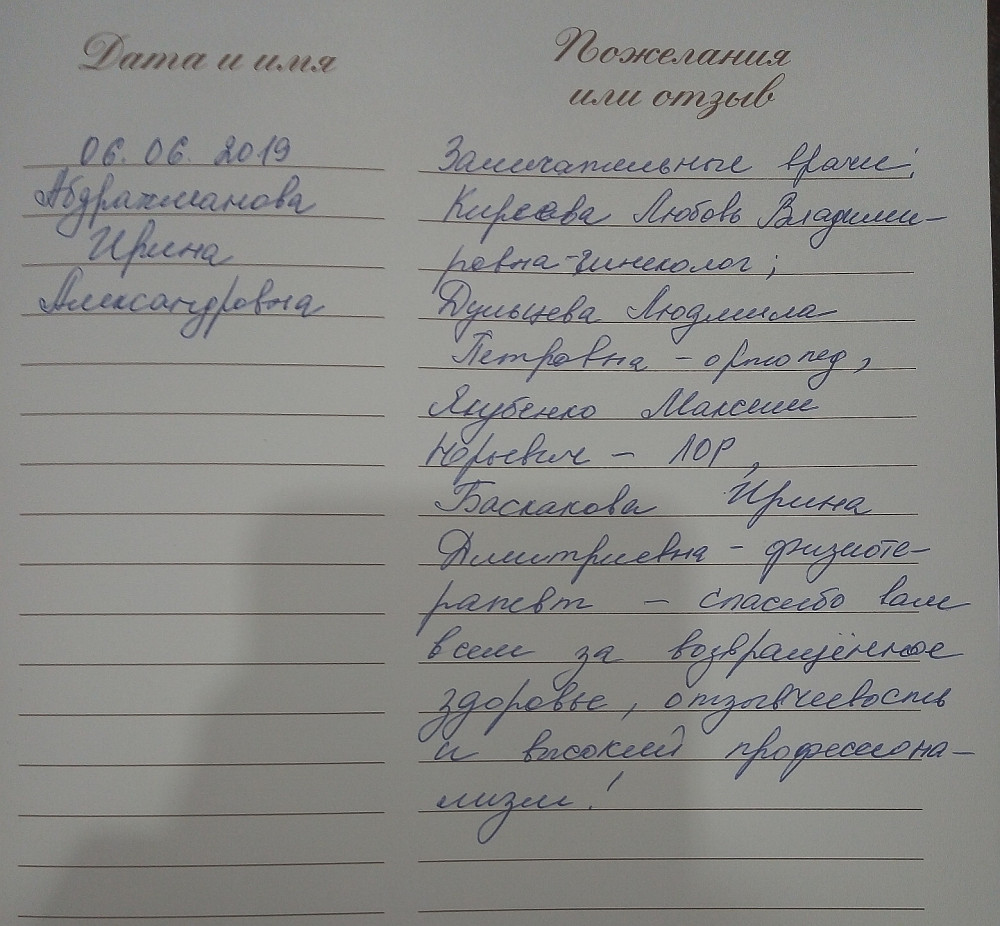 Дата и имя
06.06.2019
Абдрахманова
Ирина
Александровна
Пожелания
или отзыв
Замечательные врачи:
Кирсова Любовь Владими-
ровна-гинеколог;
Дульцева Людмила
Петровна - ортопед,
Якубенко Максим
Юрьевич - ЛОР,
Баскакова Ирина
Дмитриевна - физиоте-
рапевт - спасибо вам
всем за возвращённое
здоровье, отзывчивость
и высокий професиона-
лизм!